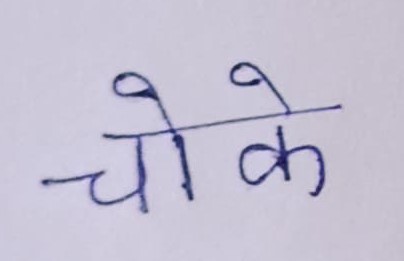 चोके